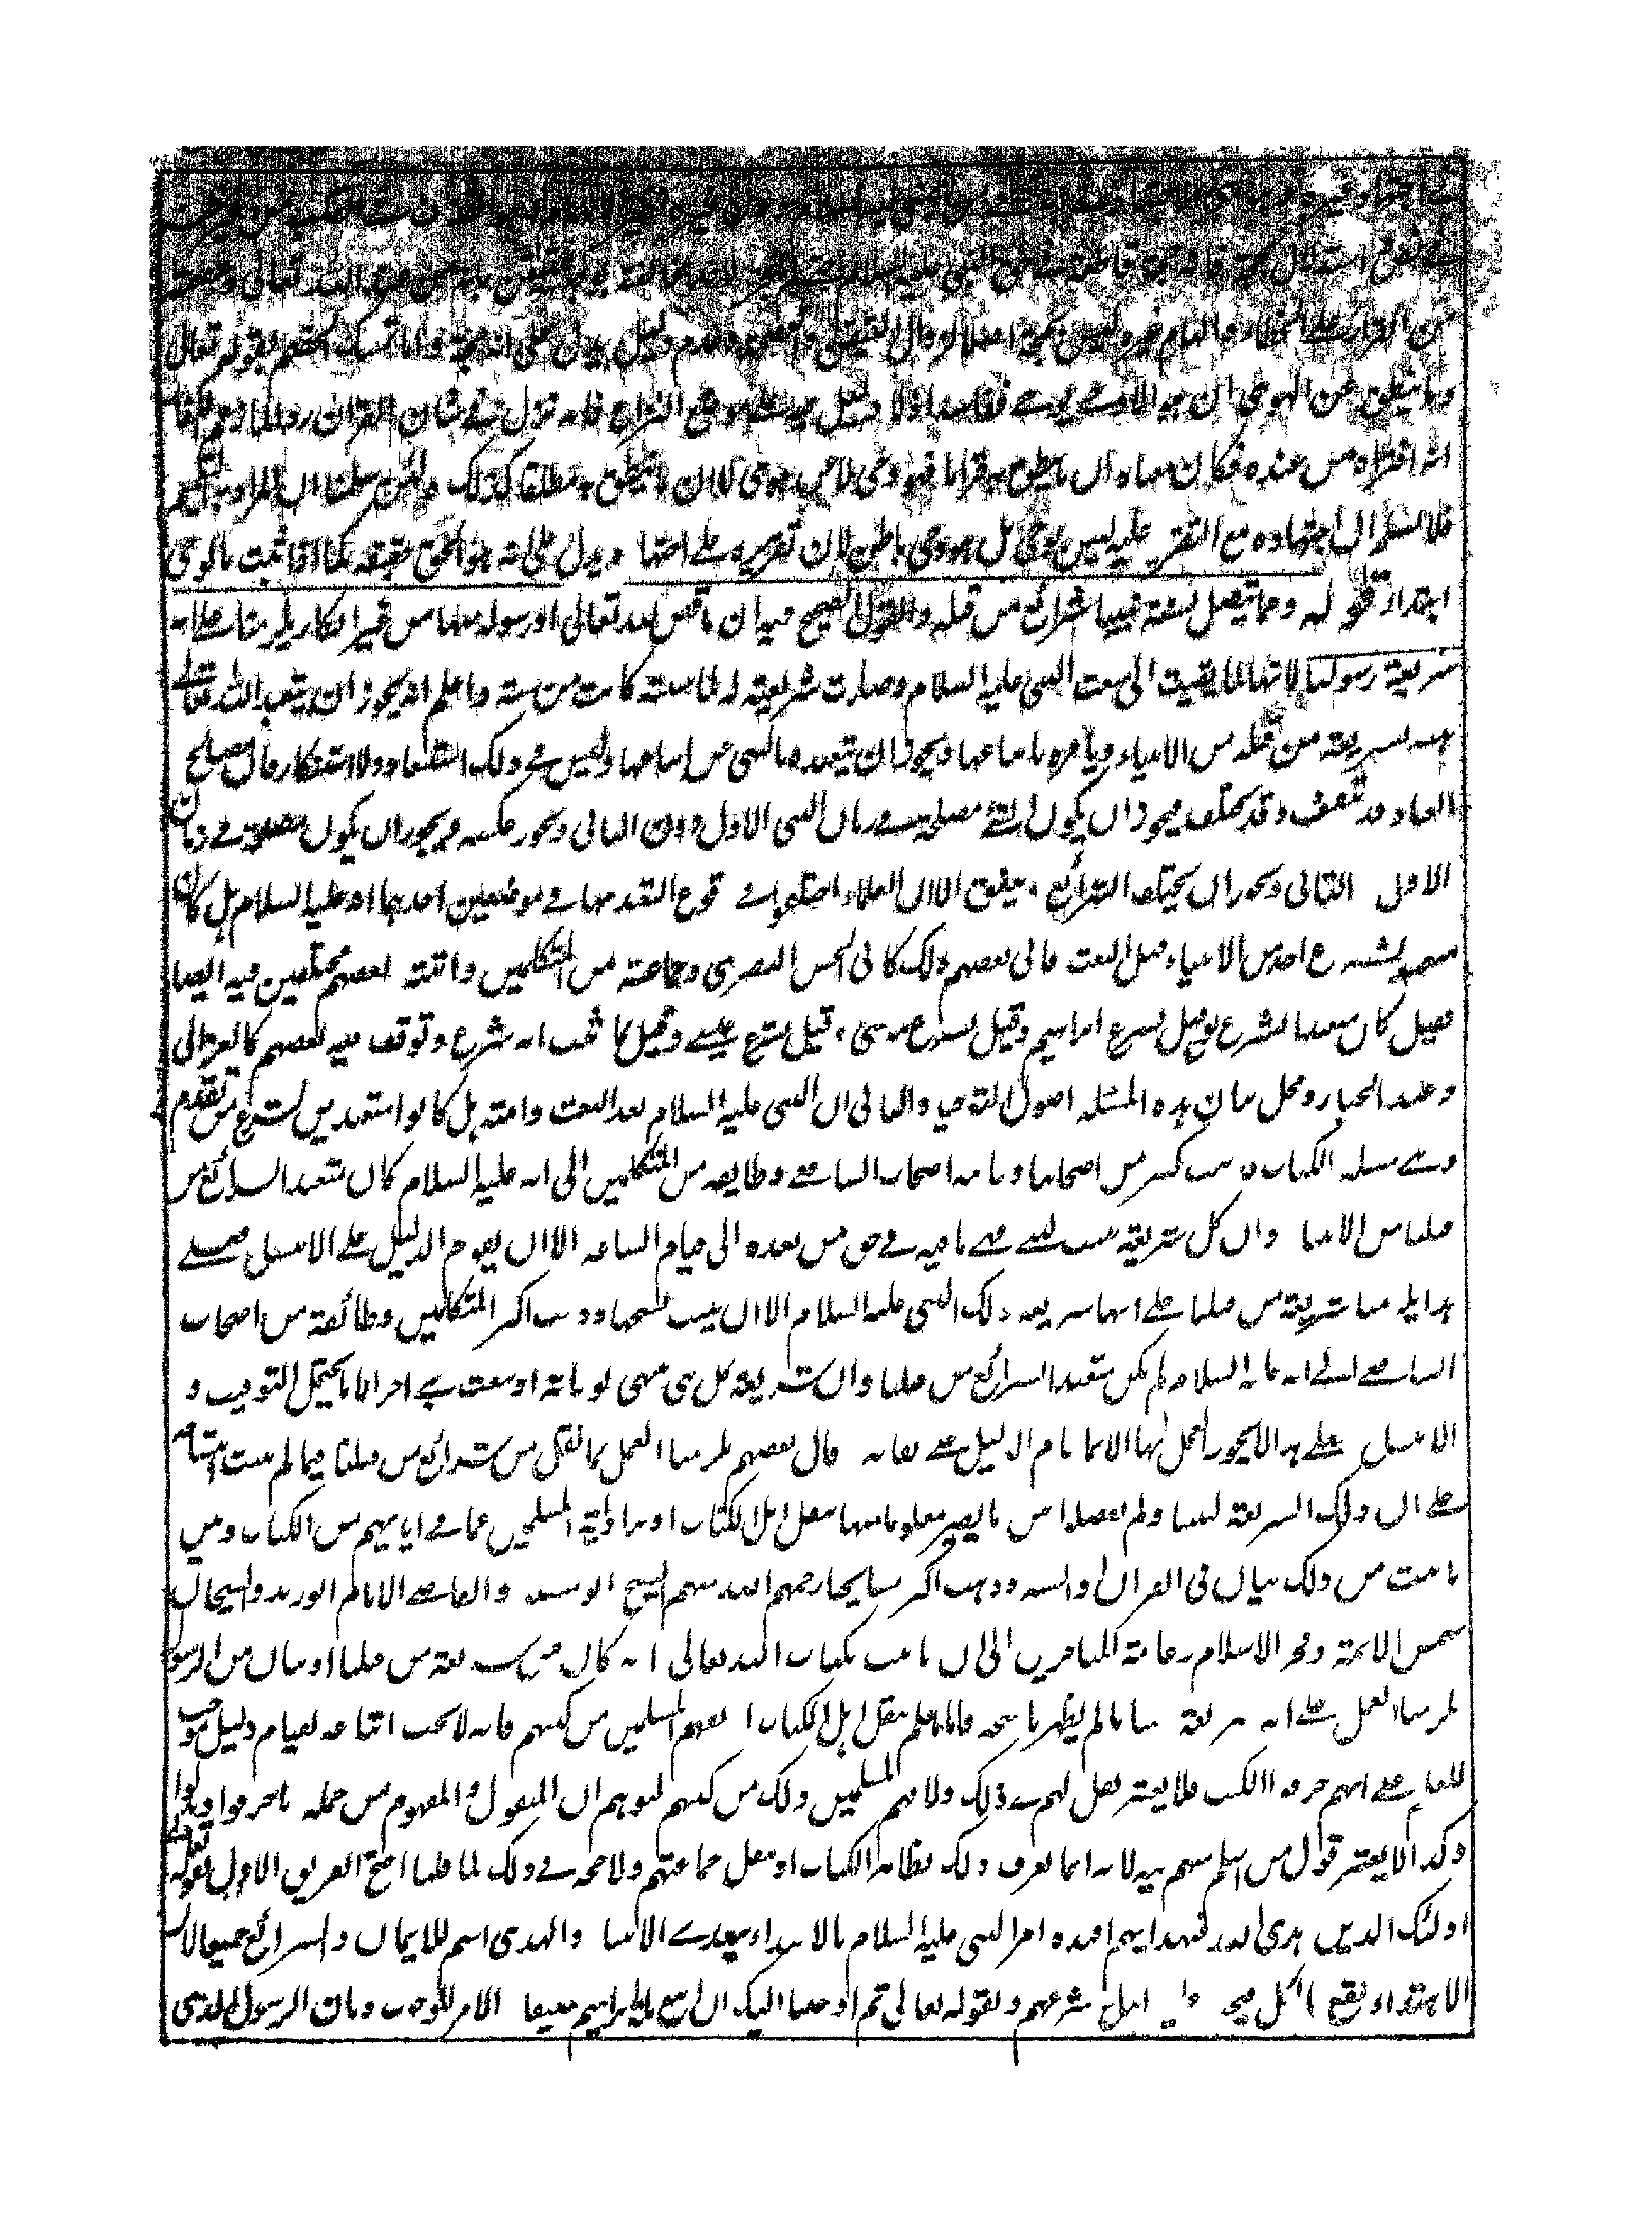 من القرار على الخطاء والهام غيره ليس بحجة اصلا لعدم دليل يدل على الحجية واما تمسك الخصم بقوله تعالى
وما ينطق عن الهوى ان هو الا وحى يوحى فلا دليل فيه على موضع النزاع فانه نزل فى شان القران ردا لما زعم الكفار
انه افتراه من عنده فكان معناه ان ما ينطق به قرانا فهو وحى لا عن هوى لا ان ما ينطق به مطلقا كذلك ولئن سلمنا ان المراد به التعميم
فلا نسلم ان اجتهاده مع التقرير عليه ليس بوحى بل هو وحى باطن لان تقريره على اجتهاده يدل على انه هو الحق حقيقة كما اذا ثبت بالوحى
ابتداء قوله ومما يتصل بسنة نبينا شرائع من قبله والقول الصحيح فيه ان ما قص الله تعالى او رسوله منها من غير انكار يلزمنا على انه
شريعة رسولنا لانها لما بقيت الى بعث النبى عليه السلام وصارت شريعة له لما سنته كانت من سنته واعلم انه يجوز ان يتعبد الله تعالى
نبيه بشريعة من قبله من الانبياء ويامره باتباعها ويجوز ان يتعبده بالنهى عن اتباعها وليس فى ذلك استبعاد ولا استنكار فان مصالح
العباد قد تتفق وقد تختلف فيجوز ان يكون الشئ مصلحة فى زمان النبى الاول دون الثانى ويجوز عكسه ويجوز ان يكون مصلحة فى زمان
الاول والثانى ويجوز ان يختلف الشرائع ويتفق الا ان العلماء اختلفوا فى وقوع التعبد بها فى موضعين احدهما انه عليه السلام هل كان
متعبدا بشرع احد من الانبياء قبل البعث فابى بعضهم ذلك كابى الحسن البصرى وجماعة من المتكلمين واثبته بعضهم مختلفين فيه ايضا
فقيل كان متعبدا بشرع نوح وقيل بشرع ابراهيم وقيل بشرع موسى وقيل بشرع عيسى وقيل بما ثبت انه شرع وتوقف فيه بعضهم كالغزالى
وعبد الجبار ومحل بيان هذه المسئلة اصول التوحيد والثانى ان النبى عليه السلام بعد البعث وامته هل كانوا متعبدين بشرع من تقدم
وهى مسئلة الكتاب ذهب كثير من اصحابنا وعامة اصحاب الشافعى وطايفة من المتكلمين الى انه عليه السلام كان متعبدا بشرائع من
قبلنا من الانبياء وان كل شريعة ثبتت لنبى فهى باقية فى حق من بعده الى قيام الساعة الا ان يقوم الدليل على الانتساخ فعلى
هذا يلزمنا شريعة من قبلنا على انها شريعة ذلك النبى عليه السلام الا ان يثبت نسخها وذهب اكثر المتكلمين وطائفة من اصحاب
الشافعى الى انه عليه السلام لم يكن متعبدا بشرائع من قبلنا وان شريعة كل نبى تنتهى بوفاته او ببعث نبى اخر الا ما لا يحتمل التوقيت و
الانتساخ فعلى هذا لا يجوز العمل بها الا بما قام الدليل على بقائه وقال بعضهم يلزمنا العمل بما نقل من شرائع من قبلنا فيما لم يثبت انتساخه
على ان ذلك شريعة لنبينا ولم يفصلوا بين ما يصير معلوما منها بنقل اهل الكتاب او برواية المسلمين عما فى ايديهم من الكتاب وبين
ما ثبت من ذلك ببيان فى القران والسنة وذهب اكثر مشايخنا رحمهم الله منهم الشيخ ابو منصور والقاضى الامام ابو زيد والشيخان
شمس الائمة وفخر الاسلام وعامة المتاخرين الى ان ما ثبت بكتاب الله تعالى انه كان من شريعة من قبلنا او ببيان من الرسول
يلزمنا العمل على انه شريعة نبينا ما لم يظهر ناسخه فاما ما علم بنقل اهل الكتاب او بفهم المسلمين من كتبهم فانه لا يجب اتباعه لقيام دليل موجب
للعلم على انهم حرفوا الكتب فلا يعتبر نقلهم فى ذلك ولا فهم المسلمين ذلك من كتبهم لتوهم ان المنقول والمفهوم من جملة ما حرفوا وبدلوا
وكذا لا يعتبر قول من اسلم منهم فيه لانه انما يعرف ذلك بظاهر الكتاب او بنقل جماعتهم ولا حجة فى ذلك لما قلنا احتج الفريق الاول بقوله تعالى
اولئك الذين هدى الله فبهداهم اقتده امر النبى عليه السلام بالاقتداء بهدى الانبياء والهدى اسم للايمان والشرائع جميعا لان
الاهتداء يقع بالكل فيجب عليه اتباع شرعهم وبقوله تعالى ثم اوحينا اليك ان اتبع ملة ابراهيم حنيفا والامر للوجوب وبان الرسول الذى